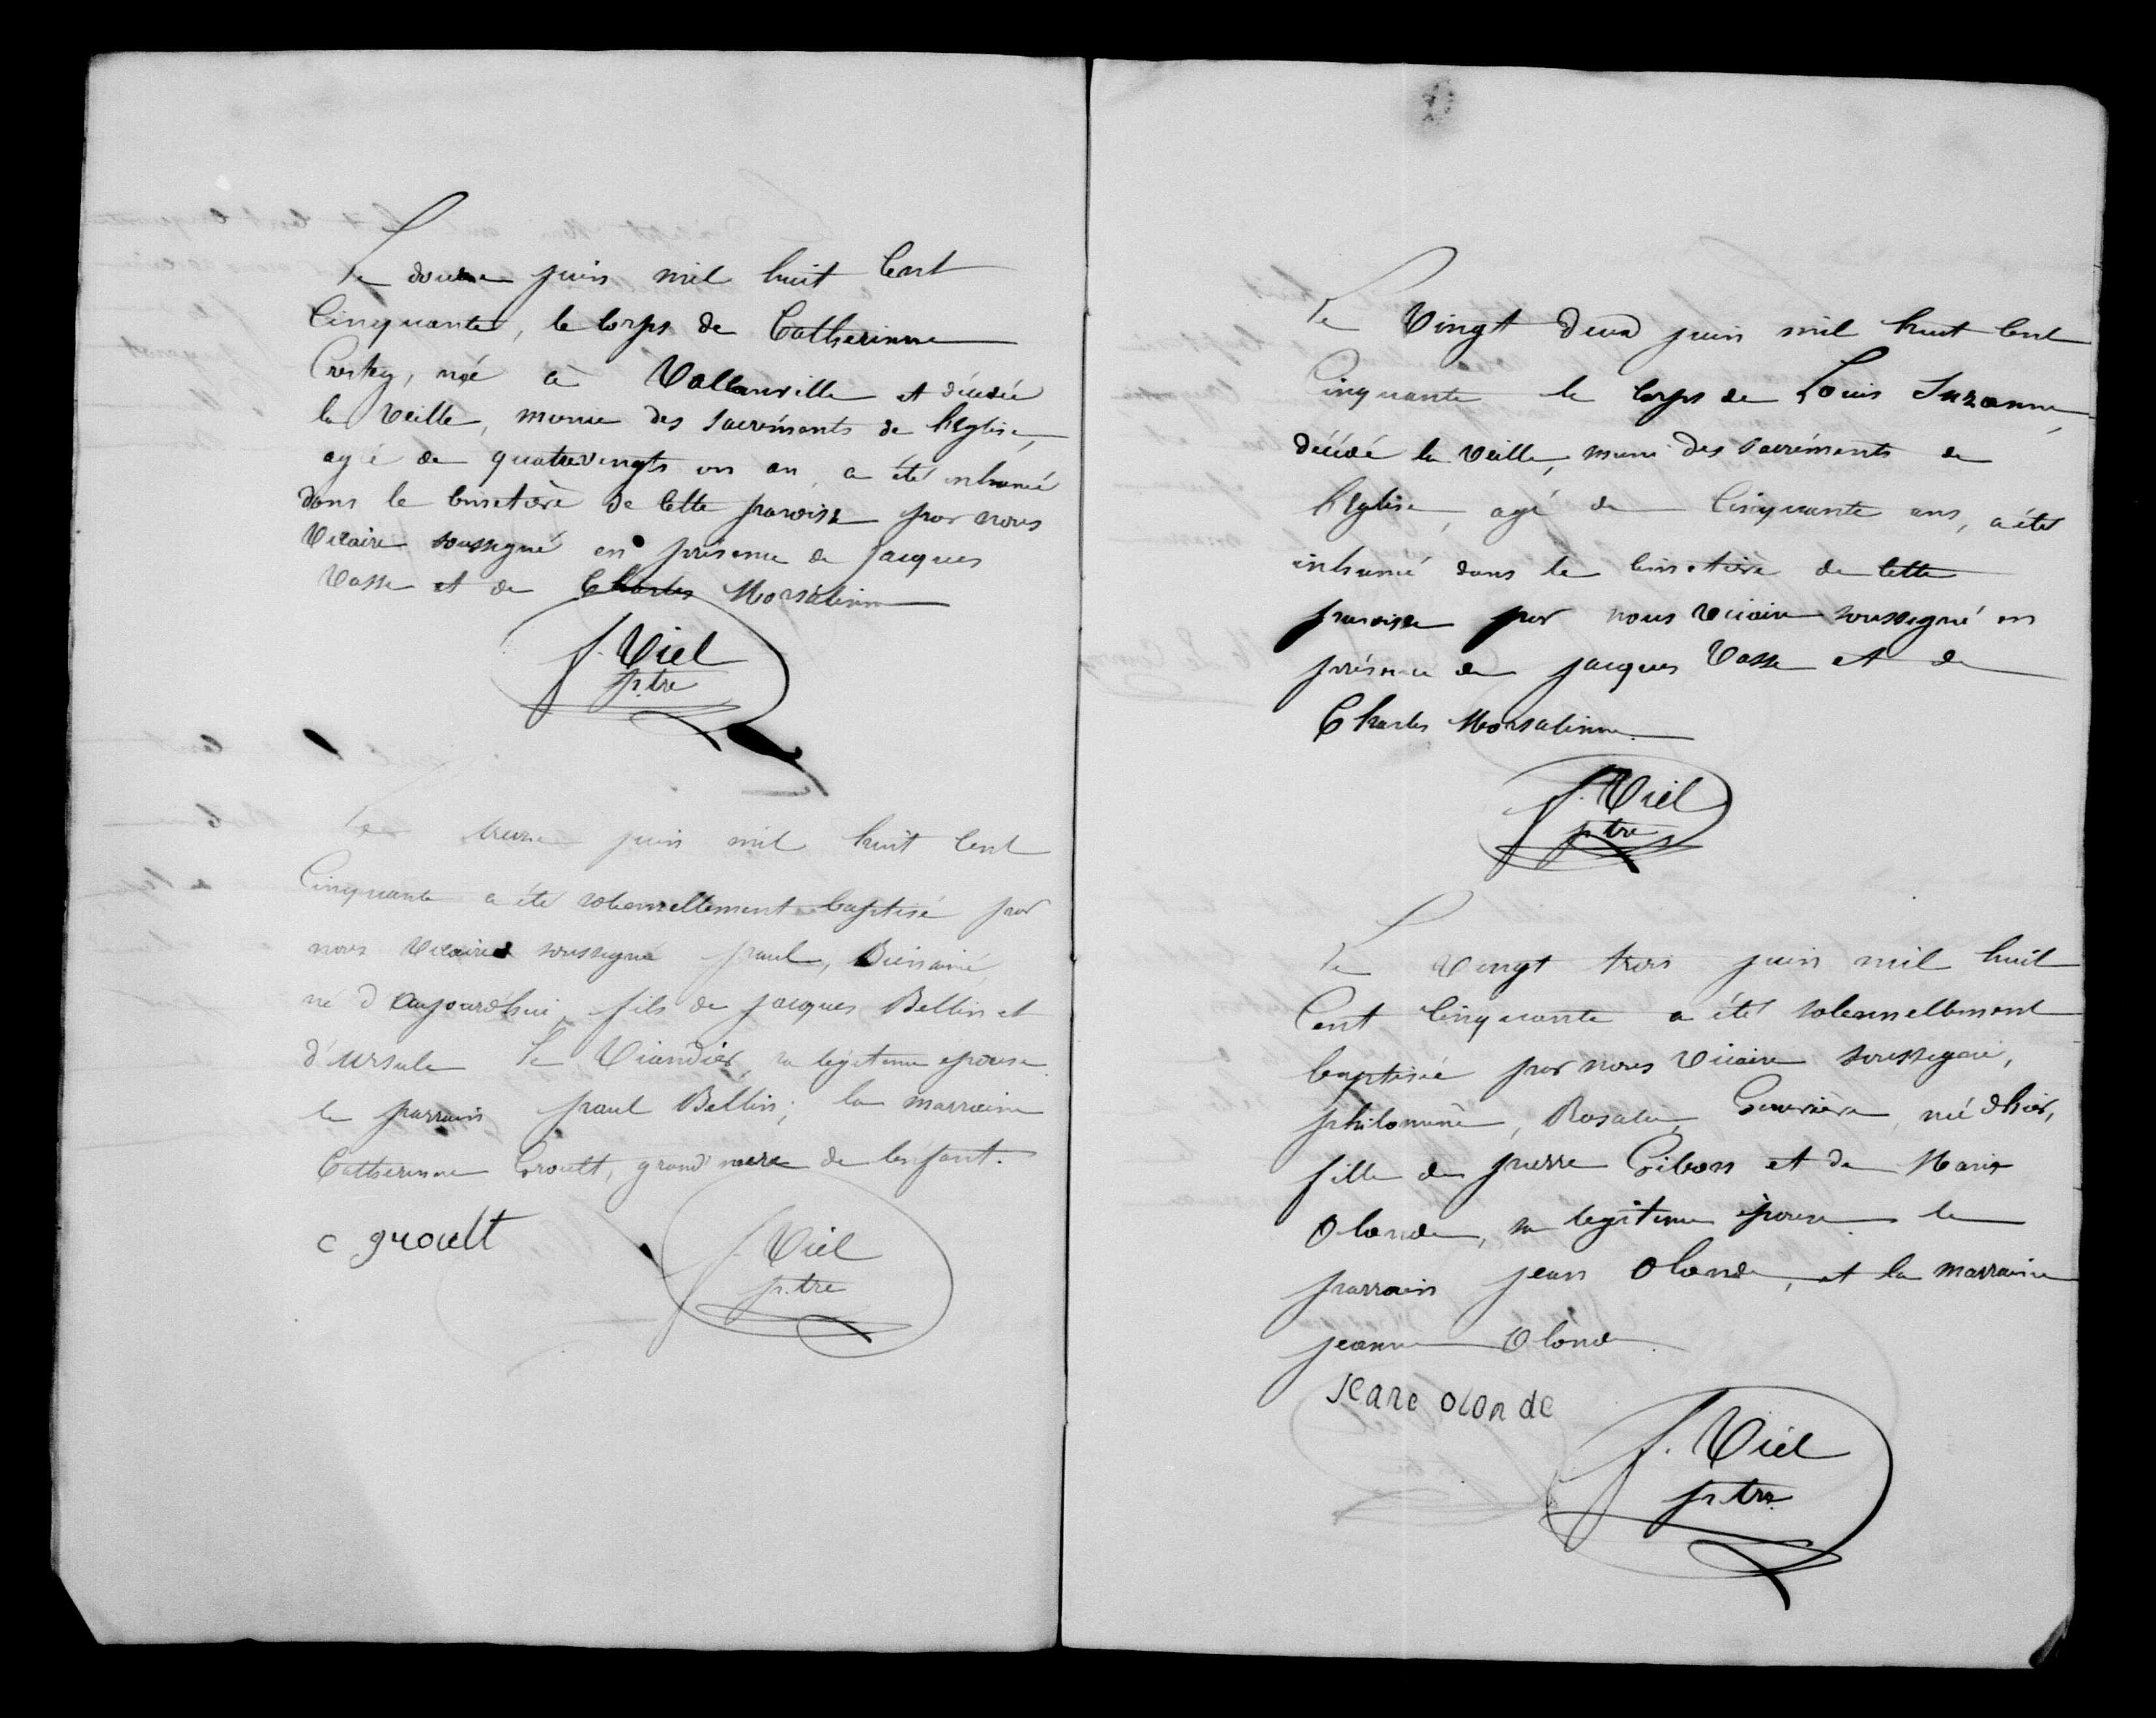 Le douze juin mil huit cent
Cinquante, le corps de Catherinne
Crestey, née à Vallauville et décédée
la veille, munie des sacréments de l'Eglise,
agée de quatrevingts un an, a été inhumée
dans le cimetière de cette paroisse par nous
Vicaire soussigné en présence de jacques
Vasse et de Charles Morsalinne
f. Viel
ptre
Le treize juin mil huit cent
Cinquante a été solennellement baptisé par
nous Vicaire soussigné paul, Bienaimé
né d'aujourd'hui, fils de jacques Bellin et
d'ursule Le Viandier, sa légitime épouse.
le parrain paul Bellin; la marraine
Catherinne Groult, grand'mère de l'enfant.
c groult
f. Viel
p.tre
Le Vingt deux juin mil huit cent
Cinquante le corps de Louis Suzanne,
décédé la veille, muni des sacréments de
l'Eglise, agé de Cinquante ans, a été
inhumé dans le cimetière de cette
paroisse par nous vicaire soussigné en
présence de jacques Vasse et de
Charles Morsalinne.
f. Viel
ptre
Le vingt trois juin mil huit
Cent Cinquante a été solennellement
baptisée par nous Vicaire soussigné,
philomène, Rosalie, née d'hier,
fille de pierre Gibon et de Marie
Olonde, sa légitime épouse. le
parrain jean Olonde, et la marraine
jeanne Olonde.
jeane olonde
f. Viel
ptre